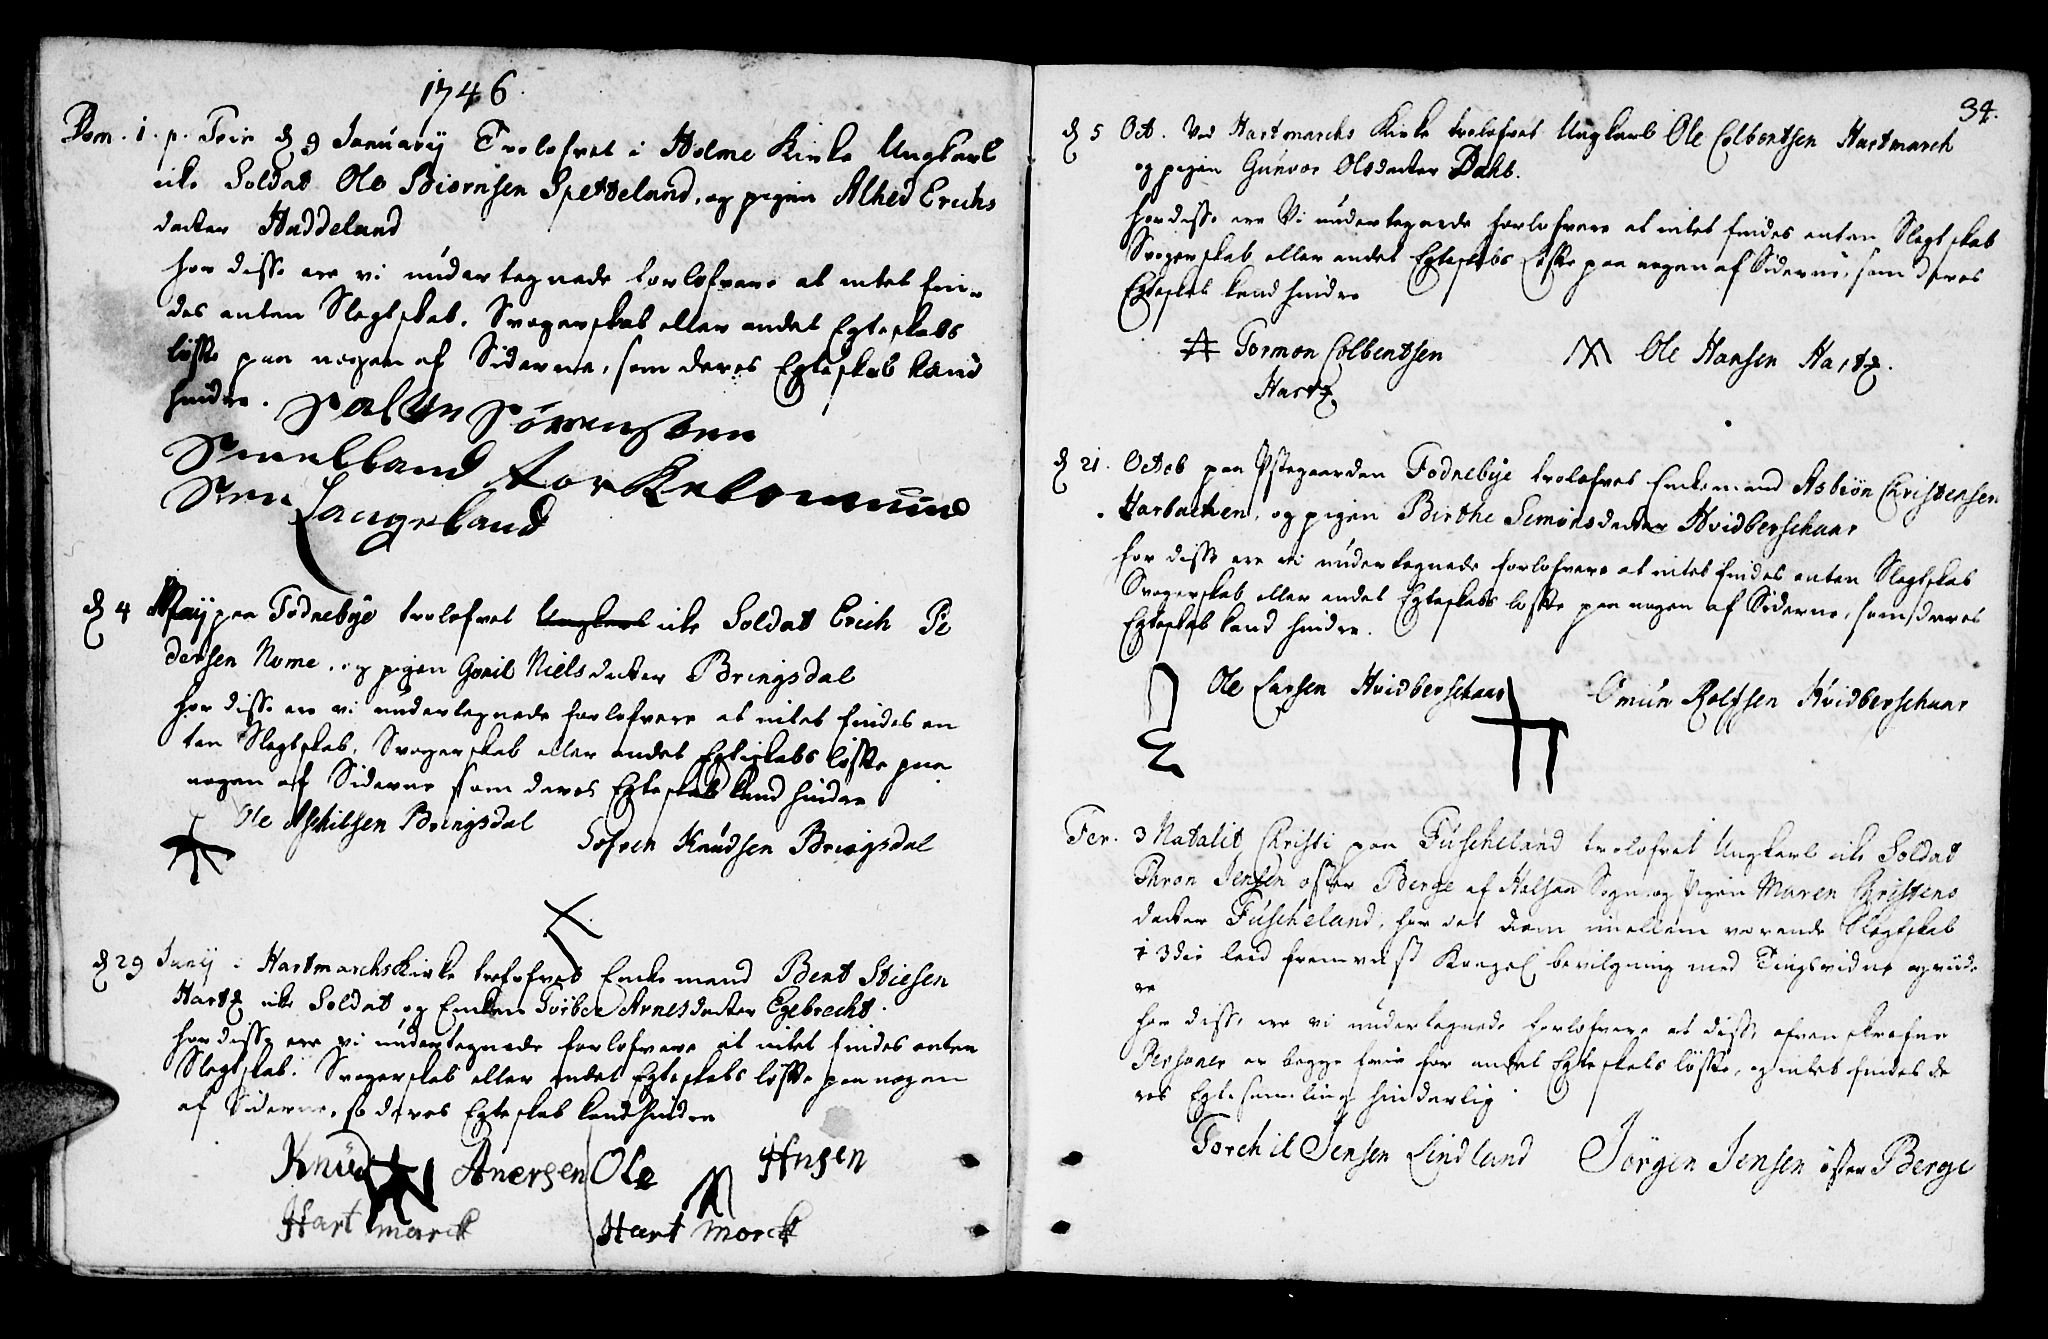 1746.
Dom. 1. p. Trin d 9 January Trolofvet i Holme Kirke Ungkarl
icke Soldat Ole Biørnsen Spetteland, og pigen Alhed Erichs
datter Haddeland
for disse ere vi undertegnede forlofvere at intet fin-
des enten Slegtskab, Svogerskab eller andet Egteskabs
løffte paa nogen af Siderne, som deres Egteskab kand
hindre. Salve Sørensøen
Smelland Torkel omund
Søen Langeland
d 4 May paa Fodnebye trolofvet Ungkarl icke Soldat Erich Pe
dersen Nome, og pigen Goril Nielsdatter Bringsdal
for disse ere vi undertegnede forlofvere at intet findes en
ten Slegtskab, Svogerskab eller andet Egteskabs løffte paa
nogen af Siderne som deres Egteskab kand hindre
Ole Aschilsen Bringsdal
Sofren Knudsen Bringsdal
d 29 Juny i Hartmarchs Kirke trolofvet Enkemand Bent Stiesen
Hartm. icke Soldat og Enken Torbor Arnesdatter Egebrecht.
for disse ere vi undertegnede forlofvere at intet findes enten
Slegtskab, Svogerskab eller andet Egteskabs løffte paa nogen
af Siderne, so deres Egteskab kand hindre
Knud Anersen Ole Hnsen
Hart marck Hart morck
34.
d 5 Oct. Ved Hartmarchs Kirke trolofvet Ungkarl Ole Colbentsen Hartmarch
og pigen Gunvor Olsdatter Dahl.
for disse ere Vi undertegnede forlofvere at intet findes enten Slegtskab
Svogerskab eller andet Egteskabs Løffte paa nogen af Siderne, som deres
Egteskab kand hindre
Tormon Colbentsen Ole Hansen Hartm.
Hartm.
d 21. Octob paa Fodnebye trolofvet Enkemand Asbiøn Christensen
Harbachen, og pigen Birthe Simonsdatter Hvidberschaar
for disse ere vi undertegnede forlofvere at intet findes enten Slegtskab
Svogerskab eller andet Egteskabs løffte paa nogen af Siderne, som deres
Egteskab kand hindre.
Ole Larsen Hvidberschaar Omun Rolfsen Hvidberschaar
Fer. 3 Natalit Christi paa Fuscheland trolofvet Ungkarl icke Soldat
Thron Jensen øster Berge af Halsaa Sogn og Pigen Maren Christens
datter Fuscheland, for det dem imellem værende Slegtskab
i 3die leed fremvist Kongel bevilgning med Tingsvidne og vide
re
for disse ere vi undertegnede forlofvere at disse ofven skrefne
Personer er begge frie for andet Egteskabs løffte, og intet findes de
res Egtesamling hinderlig.
Torchil Jensen Lindland Jørgen Jensen øster Berge